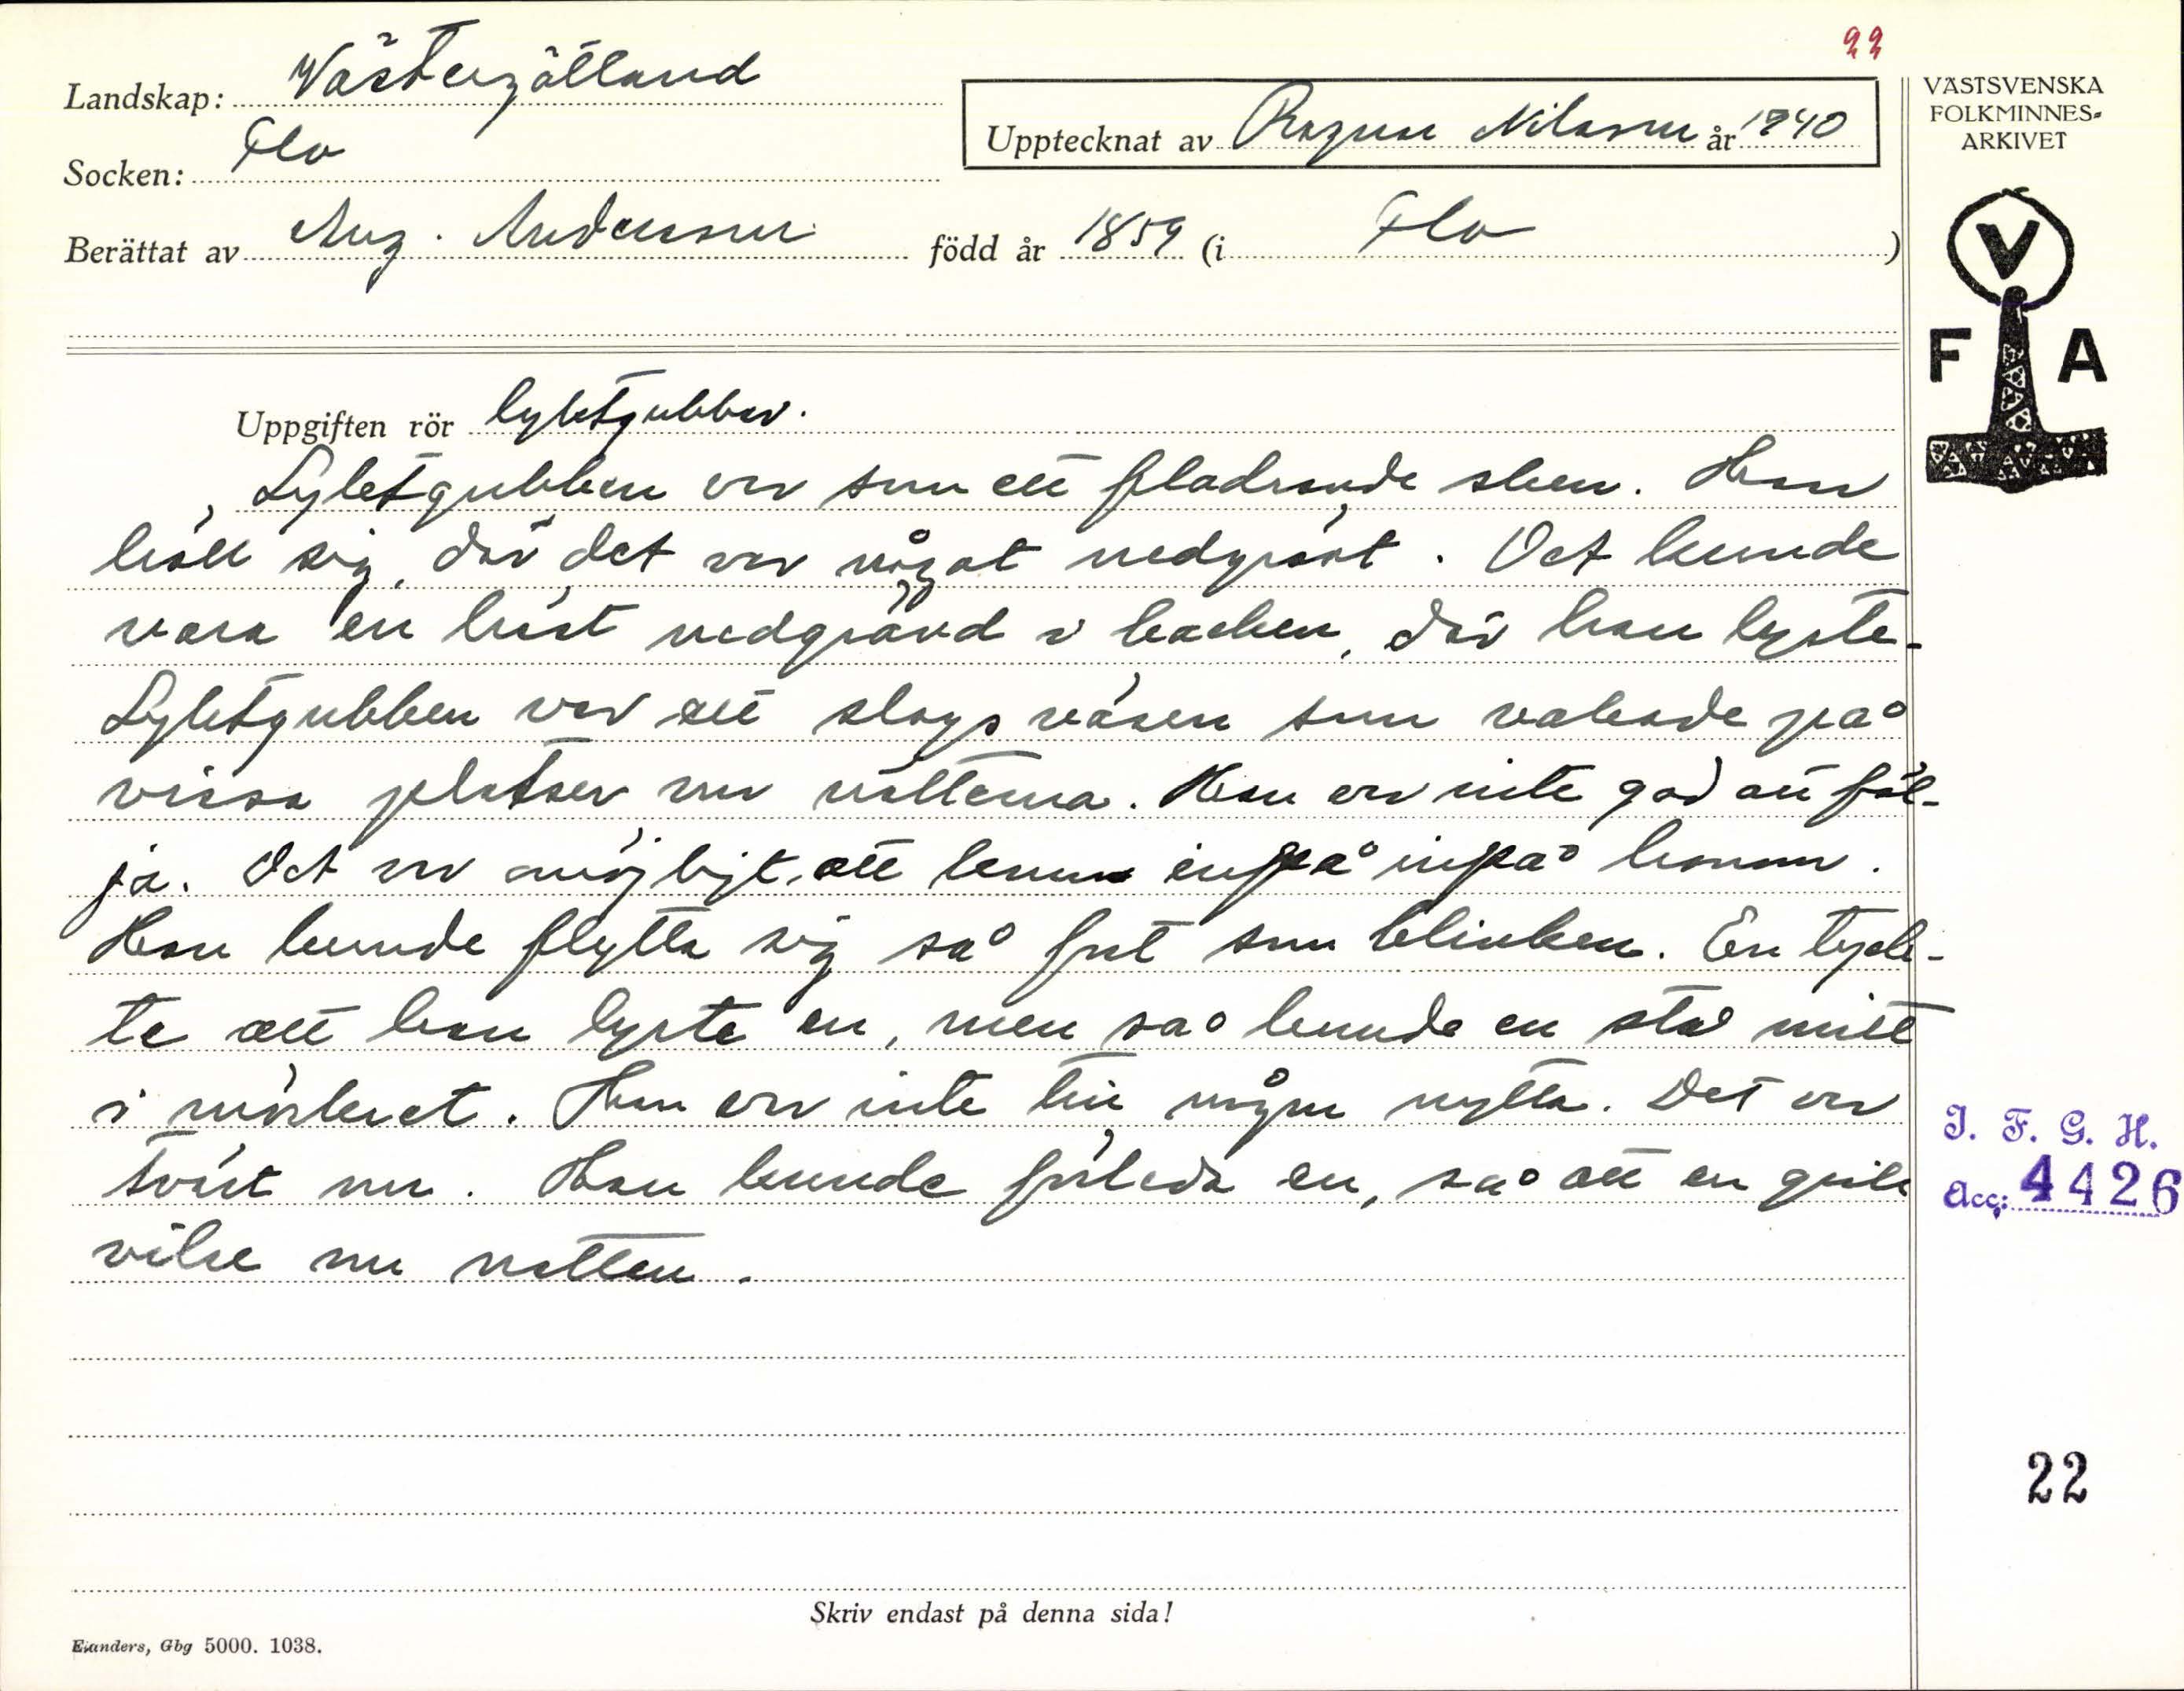 22
Landskap: Västergötland
Upptecknat av Ragnar Nilsson år 1940
VÄSTSVENSKA
FOLKMINNES-
ARKIVET
Socken: Flo
Berättat av Aug. Andersson född år 1859 (i Flo)
V
F A
Uppgiften rör lyktgubbar.
Lyktgubben var som ett fladdrande sken. Han
höll sig, där det var något nedgrävt. Det kunde
vara en häst nedgrävd i backen, där han lyste.
Lyktgubben var ett slags väsen som vakade på
vissa platser om nätterna. Han var inte god att föl-
ja. Det var omöjligt, att komma inpå inpå honom.
Han kunde flytta sig så fort som blinken. En tyck-
te att han lyste en, men så kunde en stå mitt
i mörkret. Han var inte till någon nytta. Det var
tvärt om. Han kunde förleda en, så att en gick
vilse om natten.
I. F. G. H.
Acc: 4426
22
Skriv endast på denna sida!
Elanders, Gbg 5000. 1038.